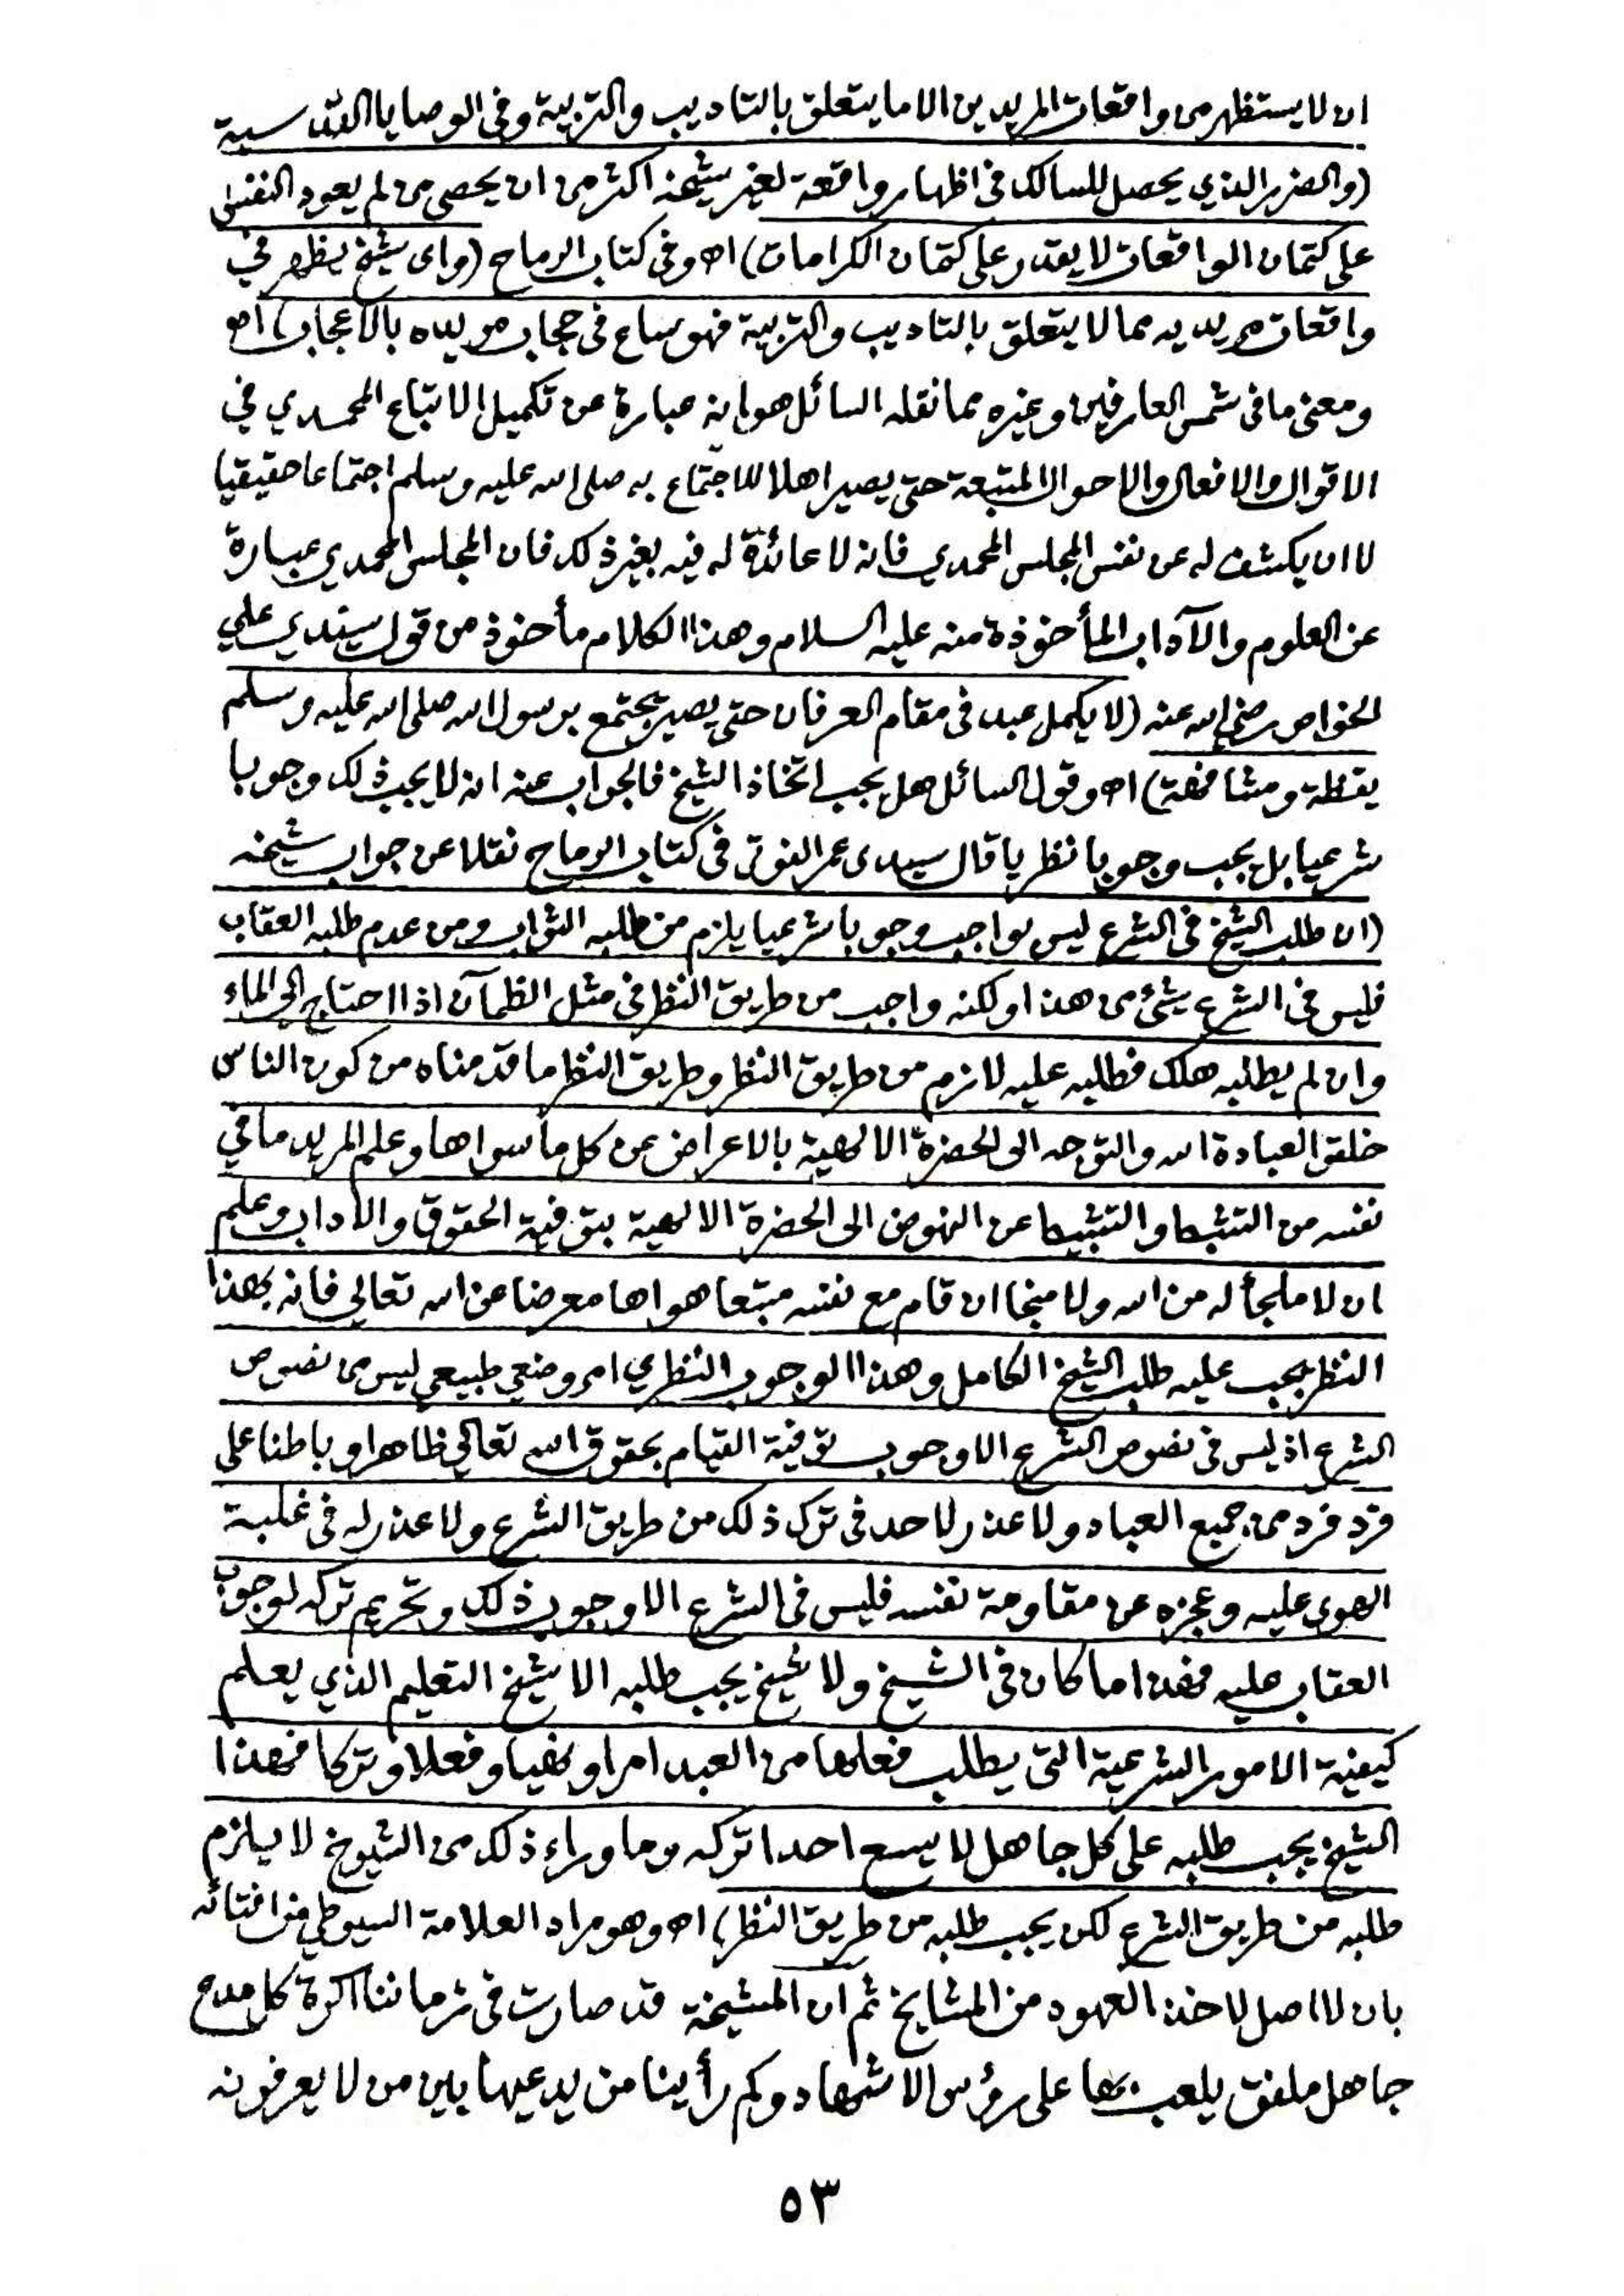 ان لا يستظهر من واقعات المريدين الا ما يتعلق بالتاديب والتربية وفي الوصايا القدسية
(والضرر الذي يحصل للسالك في اظهار واقعة لغير شيخه اكثر من ان يحصى من لم يعود النفس
على كتمان الواقعات لا يقدر على كتمان الكرامات) اه وفي كتاب الرماح (واى شيخ يظهر في
واقعات مريديه مما لا يتعلق بالتاديب والتربية فهو ساع في حجاب مريده بالاعجاب) اه
ومعنى ما في شمس العارفين وغيره مما نقله السائل هو انه عبارة عن تكميل الاتباع المحمدي في
الاقوال والافعال والاحوال المتبعة حتى يصير اهلا للاجتماع به صلى الله عليه وسلم اجتماعا حقيقيا
لا ان يكشف له عن نفس المجلس المحمدي فانه لا عائدة له فيه بغير ذلك فان المجلس المحمدي عبارة
عن العلوم والآداب المأخوذة منه عليه السلام وهذا الكلام مأخوذ من قول سيدي علي
الخواص رضي الله عنه (لا يكمل عبد في مقام العرفان حتى يصير يجتمع برسول الله صلى الله عليه وسلم
يقظة ومشافهة) اه وقول السائل هل يجب اتخاذ الشيخ فالجواب عنه انه لا يجب ذلك وجوبا
شرعيا بل يجب وجوبا نظريا قال سيدى عمر الفوتى في كتاب الرماح نقلا عن جواب شيخه
(ان طلب الشيخ في الشرع ليس بواجب وجوبا شرعيا يلزم من طلبه الثواب ومن عدم طلبه العقاب
فليس في الشرع شئ من هذا ولكنه واجب من طريق النظر في مثل الظمآن اذا احتاج الى الماء
وان لم يطلبه هلك فطلبه عليه لازم من طريق النظر وطريق النظر ما قدمناه من كون الناس
خلقوا لعبادة الله والتوجه الى الحضرة الالهية بالاعراض عن كل ما سواها وعلم المريد ما في
نفسه من التثبط والتثبيط عن النهوض الى الحضرة الالهية بتوفية الحقوق والاداب وعلم
ان لا ملجأ له من الله ولا منجا ان قام مع نفسه متبعا هواها معرضا عن الله تعالى فانه بهذا
النظر يجب عليه طلب الشيخ الكامل وهذا الوجوب النظري امر وضعي طبيعي ليس من نصوص
الشرع اذ ليس في نصوص الشرع الا وجوب توفية القيام بحقوق الله تعالى ظاهرا وباطنا على
فرد فرد من جميع العباد ولا عذر لاحد في ترك ذلك من طريق الشرع ولا عذر له في غلبة
الهوى عليه وعجزه عن مقاومة نفسه فليس في الشرع الا وجوب ذلك وتحريم تركه لوجوب
العقاب عليه فهذا ما كان في الشيخ ولا شيخ يجب طلبه الا شيخ التعليم الذي يعلم
كيفية الامور الشرعية التي يطلب فعلها من العبد امرا ونهيا وفعلا وتركا فهذا
الشيخ يجب طلبه على كل جاهل لا يسع احدا تركه وما وراء ذلك من الشيوخ لا يلزم
طلبه من طريق الشرع لكن يجب طلبه من طريق النظر) اه وهو مراد العلامة السيوطي من افتائه
بان لا اصل لاخذ العهود من المشايخ ثم ان المشيخة قد صارت في زماننا اكرة كل مدع
جاهل ملفق يلعب بها على رؤس الاشهاد وكم رأينا من يدعيها بين من لا يعرفونه
٥٣